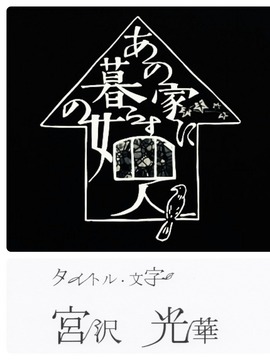 あの家に
暮らす四人
の女
タイトル・文字
宮沢 光華